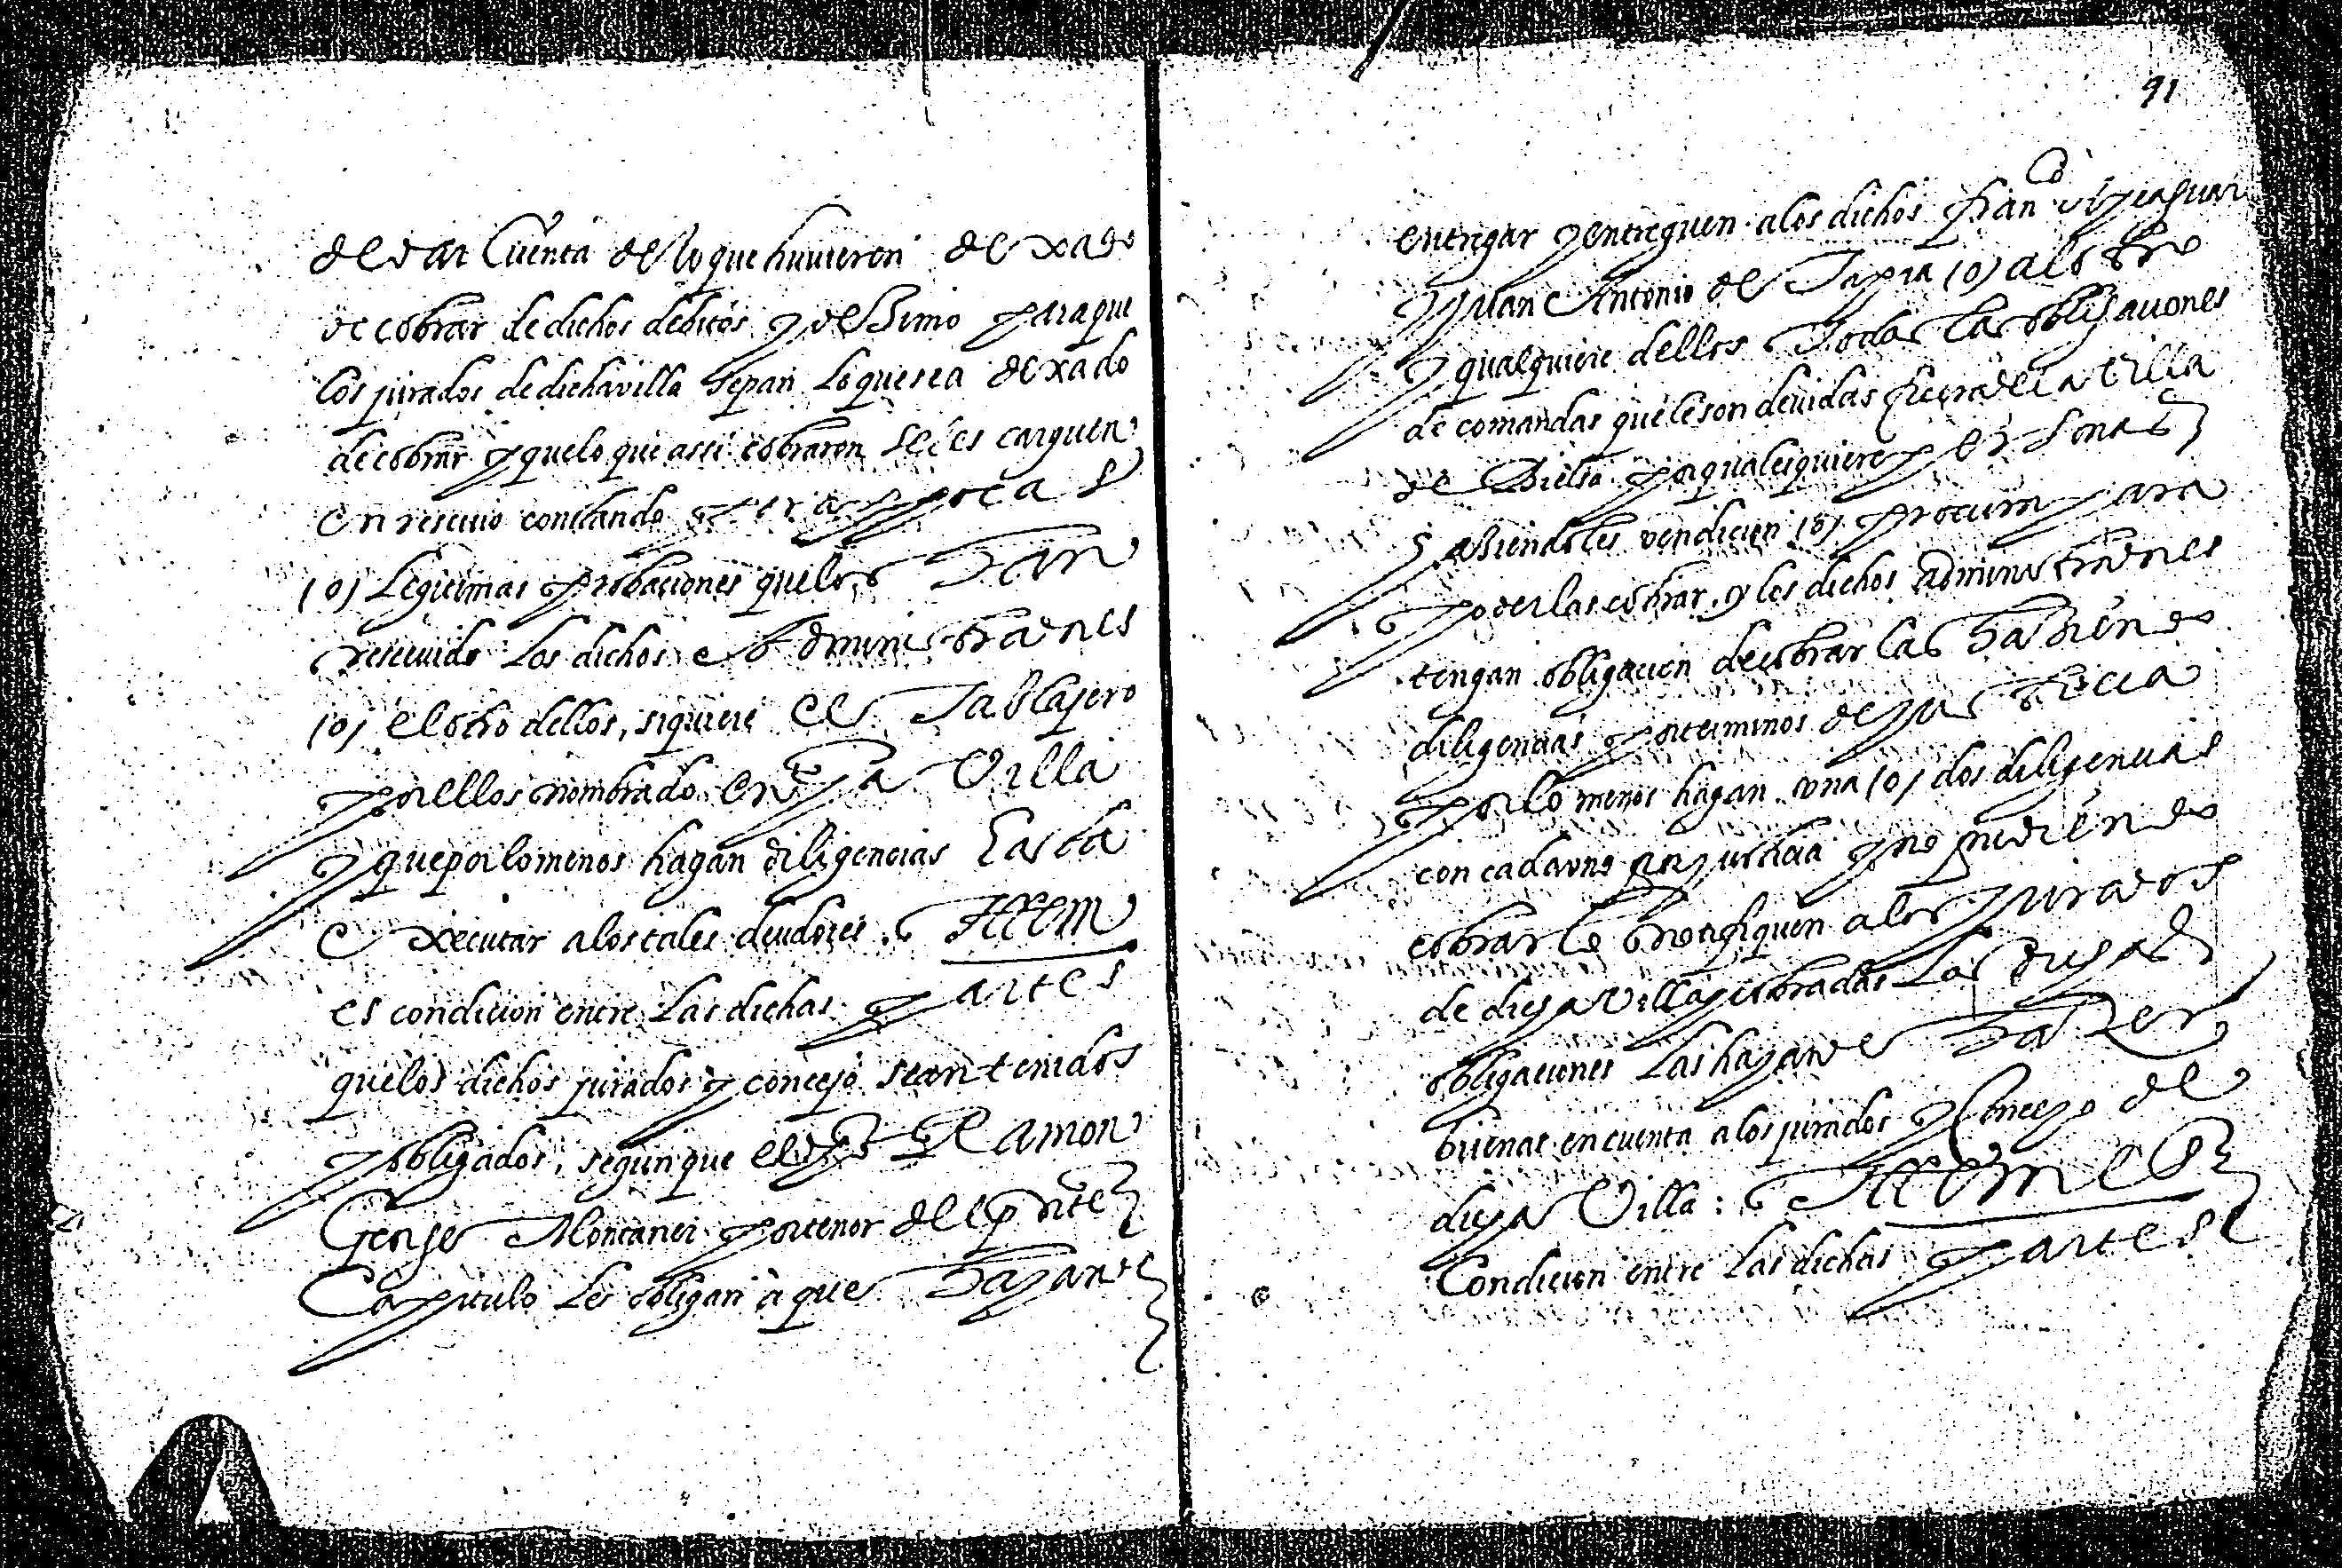 de dar Cuenta de lo que huuieren dexado
de cobrar de dichos debitos y del Bimo para que
los jurados de dicha villa sepan lo que sea dexado
de cobrar y que lo que assi cobraren se les carguen
en resciuo constando por apocas
(o) legitimas probaciones que los han
resceuido los dichos Administradores
(o) el otro dellos, siquiere el Tablajero
por ellos nombrado en dha Villa
y que por lo menos hagan diligencias hasta
executar a los tales deudores. Ittem
es condicion entre las dichas partes
que los dichos jurados y concejo sean tenidos
y obligados, segun que el dho Ramon
Gonge Montaner por tenor del pnte
Capitulo les obligan à que hayan de
91
entregar y entreguen a los dichos Franco
y Juan Antonio de Tapia (o) al otro
y qualquiere dellos Todas las obligaciones
de comandas que le son deuidas fuera de la Villa
de Bielsa por qualesquiere personas
haziendoles vendicion (o) procura para
poderlas cobrar, y los dichos administradores
tengan obligacion de cobrarlas haziendo
diligencias por terminos de justicia
por lo menos hagan una (o) dos diligencias
con cada uno por justicia y no pudiendo
cobrar lo notifiquen a los jurados
de dicha Villa y cobradas las dichas
obligaciones las hayan de hazer
buenas en cuenta a los jurados y Concejo de
dicha Villa: Ittem es
Condicion entre las dichas partes